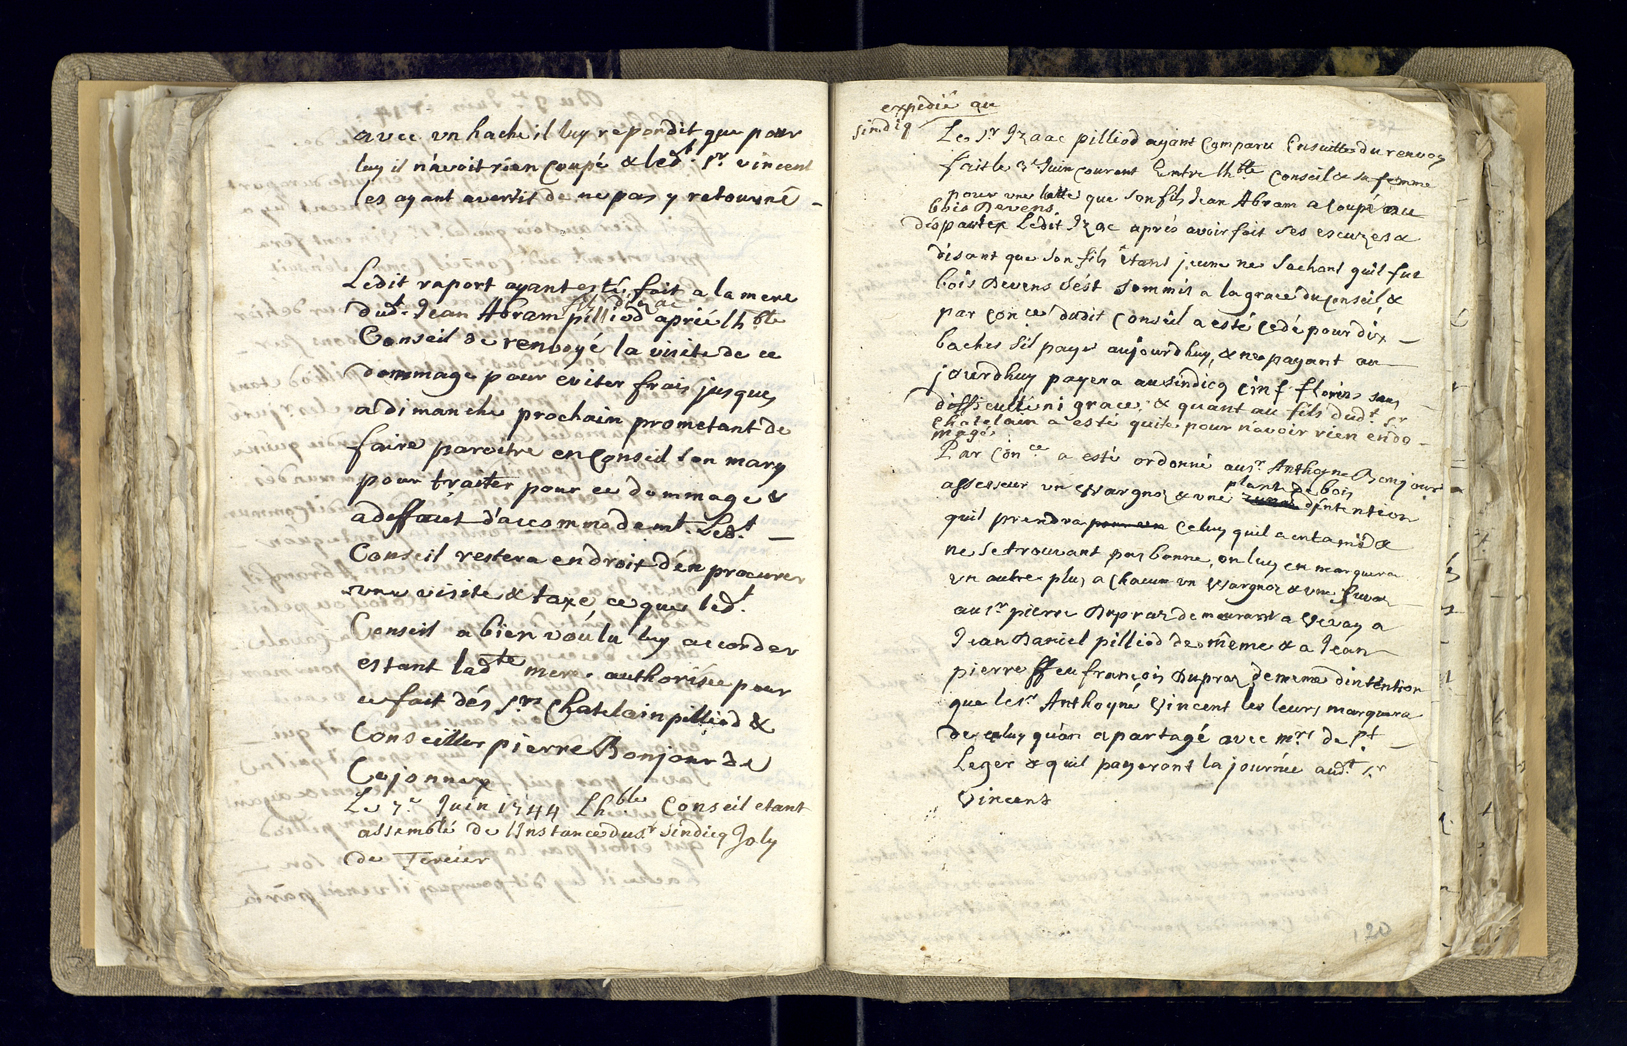 avec vn hache il luy repondit que pour
luy il n'avoit rien coupé & led.t S.r vincent
les ayant avertit de ne pas y retourné -
Ledit raport ayant esté fait a la mere
dud.t Jean Abram pillied aprié lh.ble
fils d'Izac
Conseil de renvoyé la visite de ce
dommage pour eviter frais jusques
a dimanche prochain prometant de
faire paroitre en Conseil son mary
pour traiter pour ce dommage &
a deffaut d'accommodem.t Led.t -
Conseil restera en droit d'en procurer
vne visite & taxe, ce que led.t
Conseil a bien voulu luy accorder
estant lad.te mere authorisée pour
ce fait des S.rs Chatelain pilliod &
Conseiller pierre Bonjour de
Cojonnex
Le 7.e Juin 1744 Lh.ble Conseil etant
assemblé de l'Instance du s.r sindicq Joly
de Tercier
expedié au
sindiq
Le S.r Izaac pilliod ayant Comparu Ensuitte du renvoy
fait le 3.e Juin courant Entre lh.ble Conseil & sa femme
pour vne latte que son fils Jean Abram a coupé au
bois Devens.
desparter Ledit Izac aprés avoir fait ses escuzes &
disant que son fils étant jeune ne sachant qu'il fut
bois Devens s'est sommis a la grace du Conseil &
par Con.ce dudit Conseil a esté cedé pour dix -
baches s'il paye aujourdhuy, & ne payant au
jourdhuy payera au sindicq cinf florins sans
difficulté ni grace, & quant au fils dud.t Sr
Chatelain a esté quite pour n'avoir rien endo -
magé.
Par Con.ce a esté ordonné au s.r Anthoyne Bonjour
assesseur un Wargnoz & vne d'intention
plante de bois
quil prendra celuy quil a entamé &
ne se trouvant pas bonne, on luy en marquera
vn autre plus a Chacun vn Wargnoz & vne fuvaz
au s.r pierre Dupraz demeurant a Vevay a
Jean Daniel pilliod de même & a Jean
pierre ffeu françois Dupraz de meme d'intention
que le s.r Anthoyne Vincent les leurs marquera
de celuy qu'on a partagé avec m.rs de S.t
Leger & quil payeront la journée aud.t S.r
Vincent
120